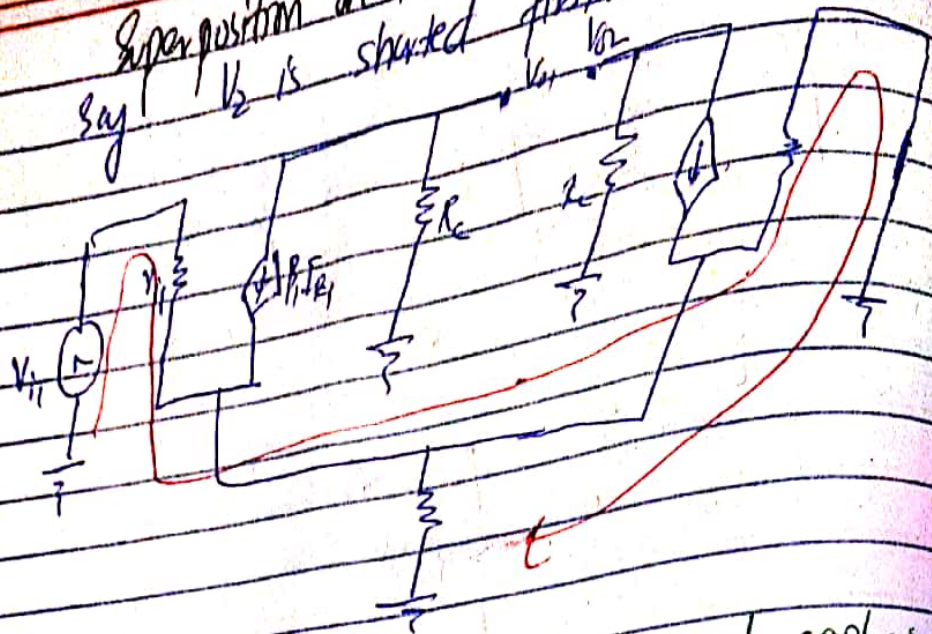 Superposition
Say V₂ is shorted
V₀₁ V₀₂
R_c
R_c
r_i1
β₁I_B1
V_i1